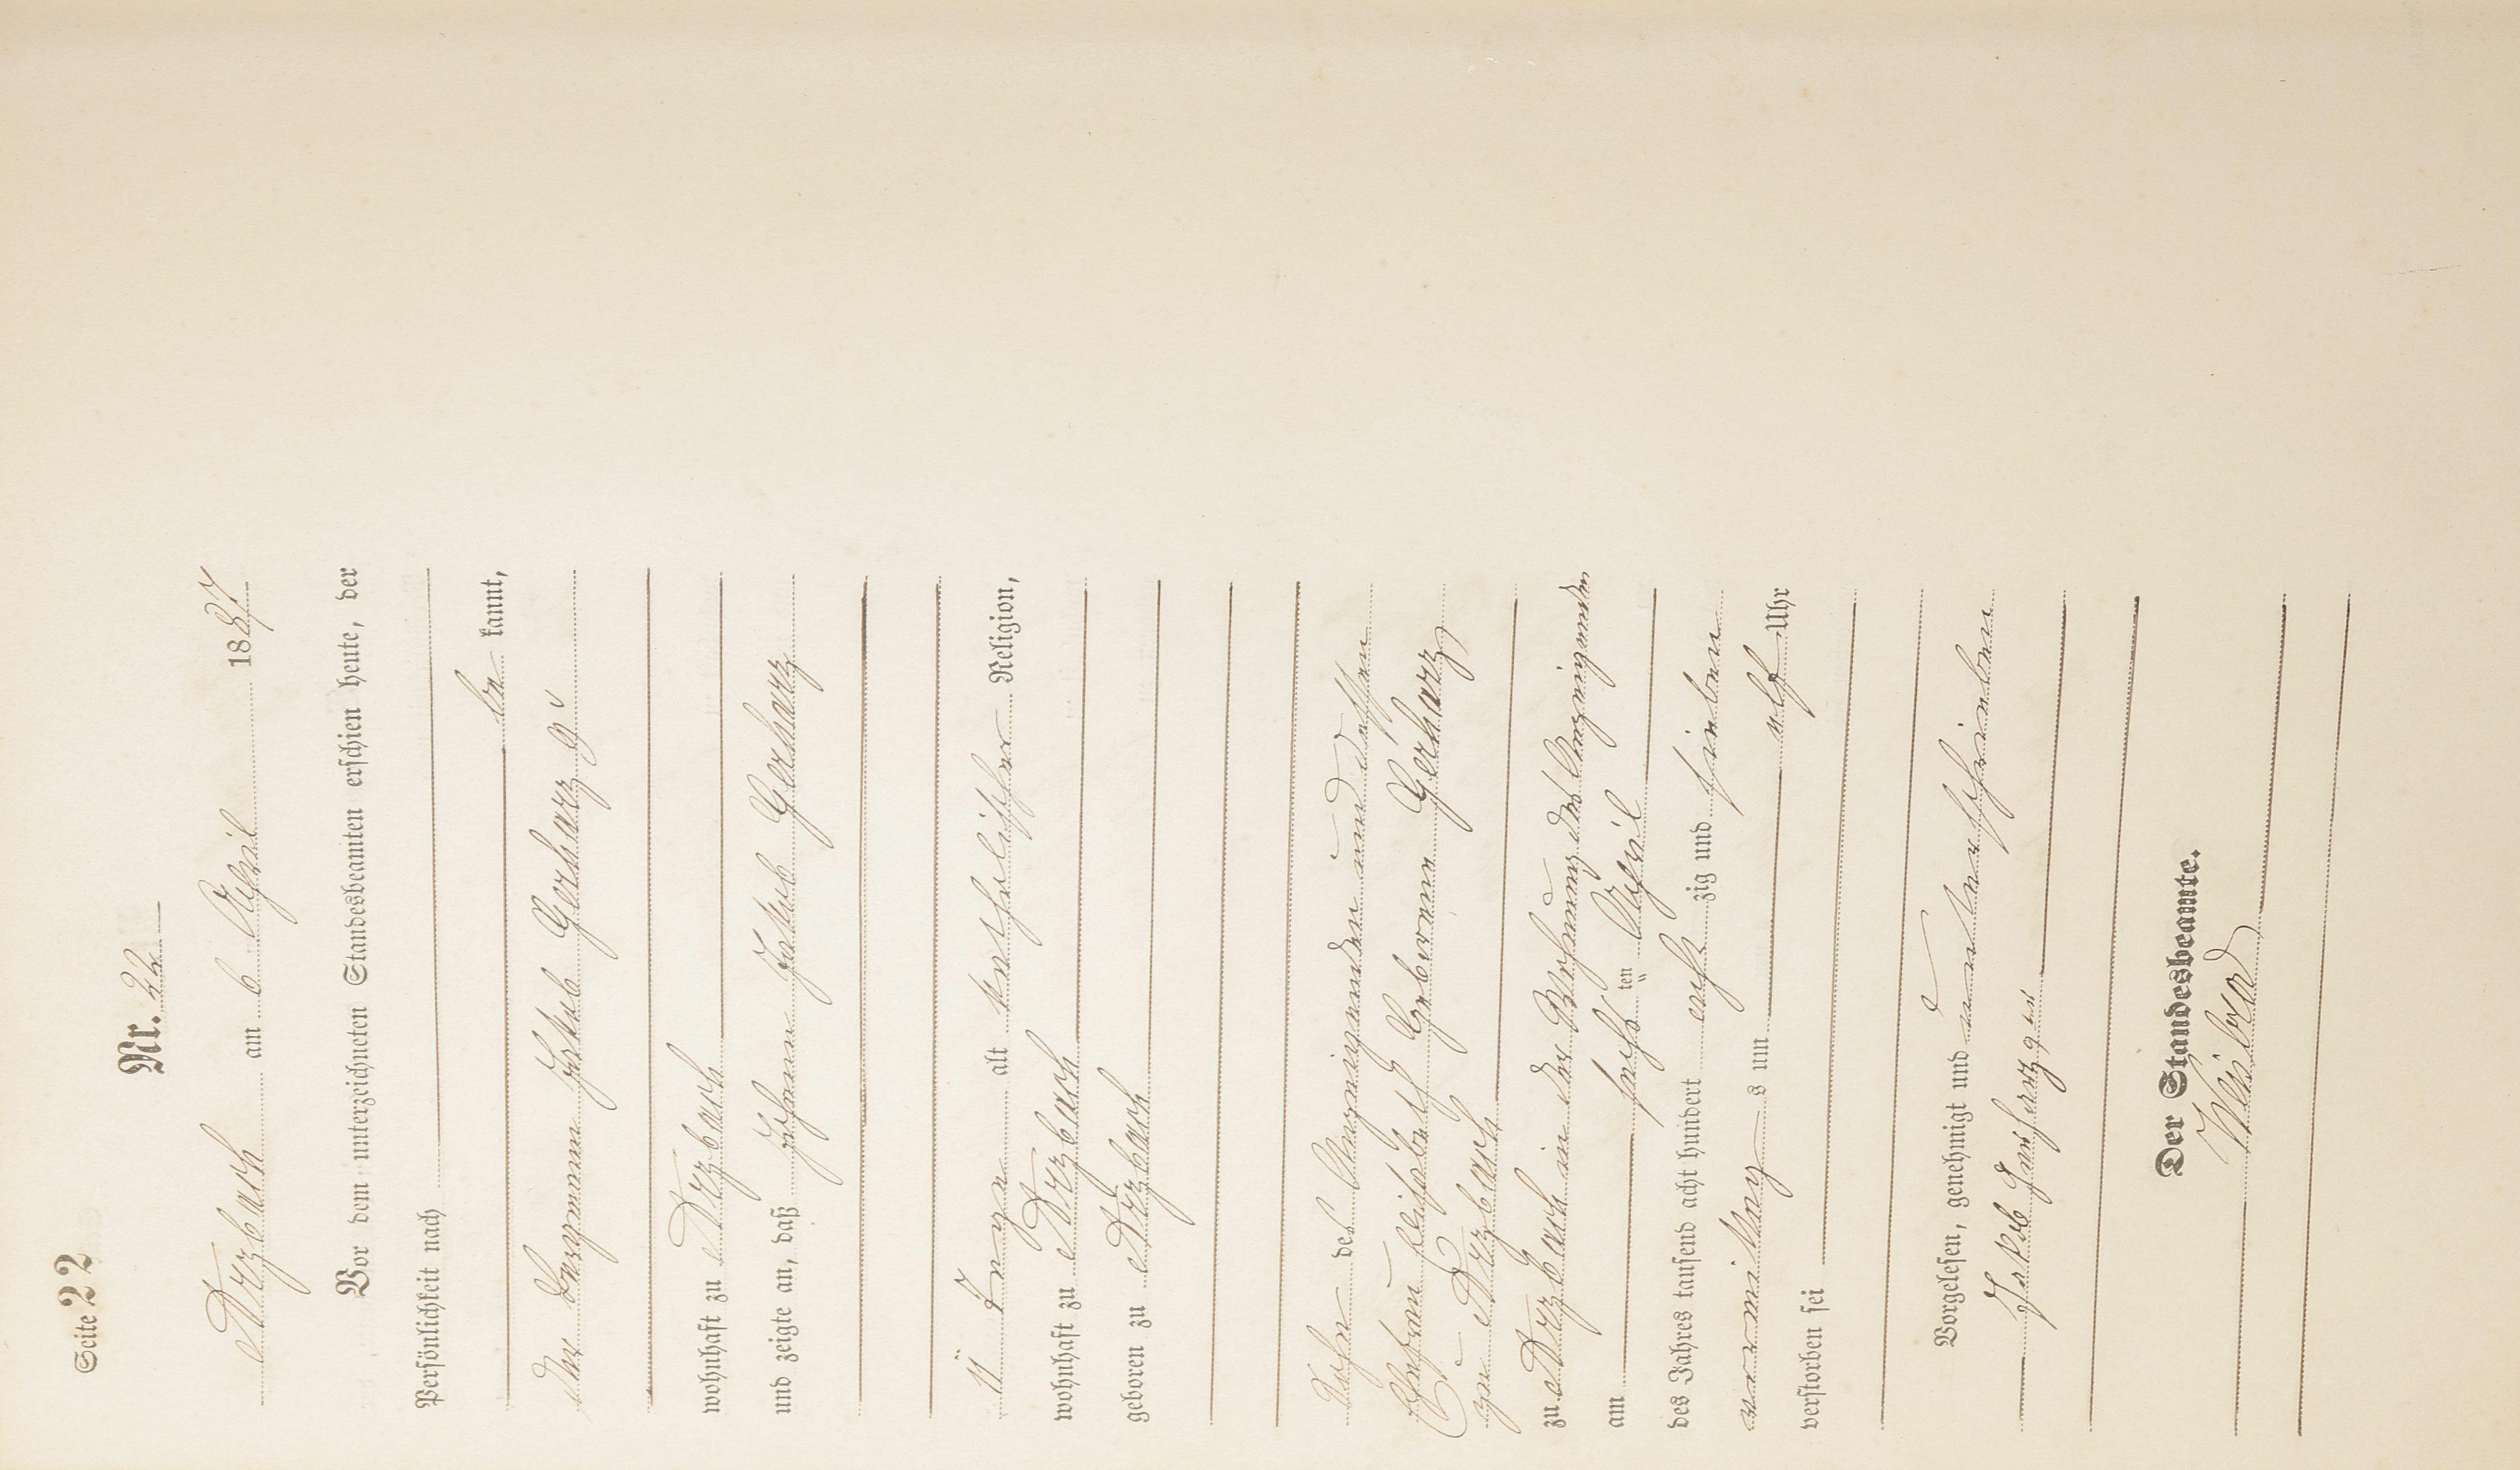 Seite 22
Nr. 22
Arzbach am 6 April 1887
Vor dem unterzeichneten Standesbeamten erschien heute, der
Persönlichkeit nach
be kannt,
der Bergmann Jakob Gerharz
wohnhaft zu Arzbach
und zeigte an, daß Johann Jakob Gerharz
Tage alt katholischer Religion,
wohnhaft zu Arzbach
geboren zu Arzbach
Sohn des Anzeigenden und dessen
Ehefrau Elisabeth Geborene Gerharz
zu Arzbach
zu Arzbach in der Wohnung des Anzeigenden
am sechs ten April
des Jahres tausend acht hundert acht zig und sieben
vormittag s um elf Uhr
verstorben sei
Vorgelesen, genehmigt und unterschrieben
Jakob Gerharz
Der Standesbeamte.